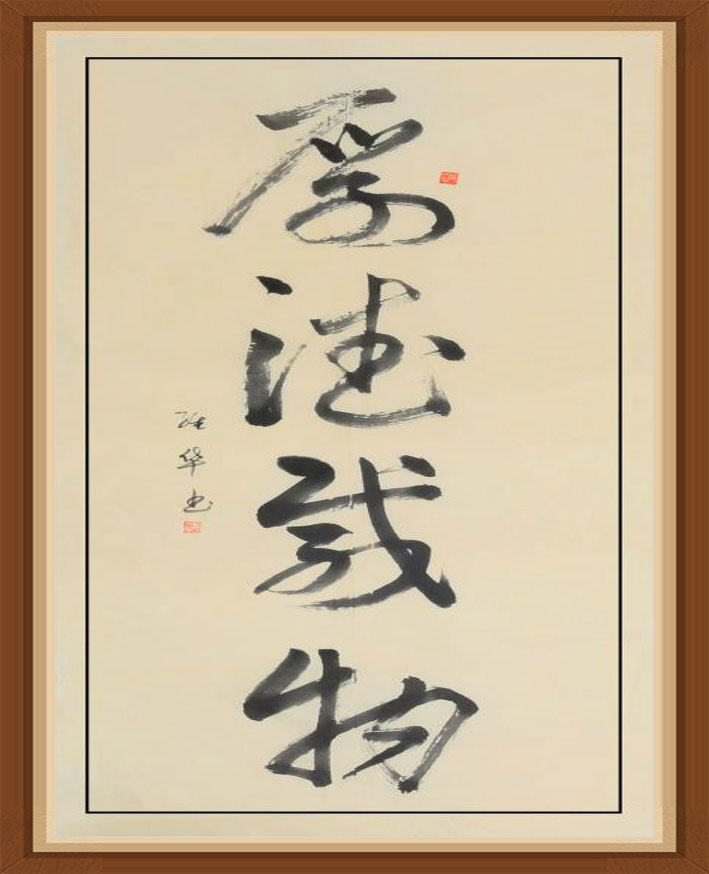 厚德载物
维华书